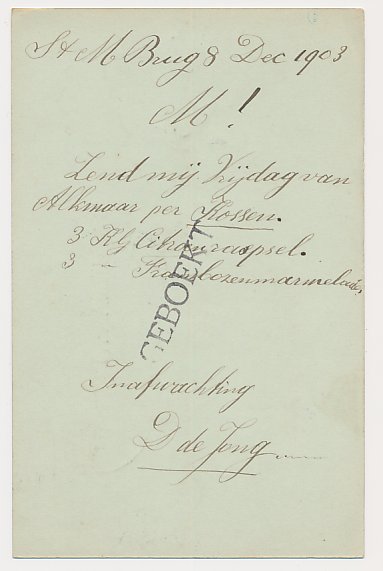 St M Brug 8 Dec 1903
M!
Zend mij Vrijdag van
Alkmaar per Kossen.
3 KG Citronraspsel.
3 " Frambozenmarmelade,
GEBOEKT
Inafwachting
D de Jong